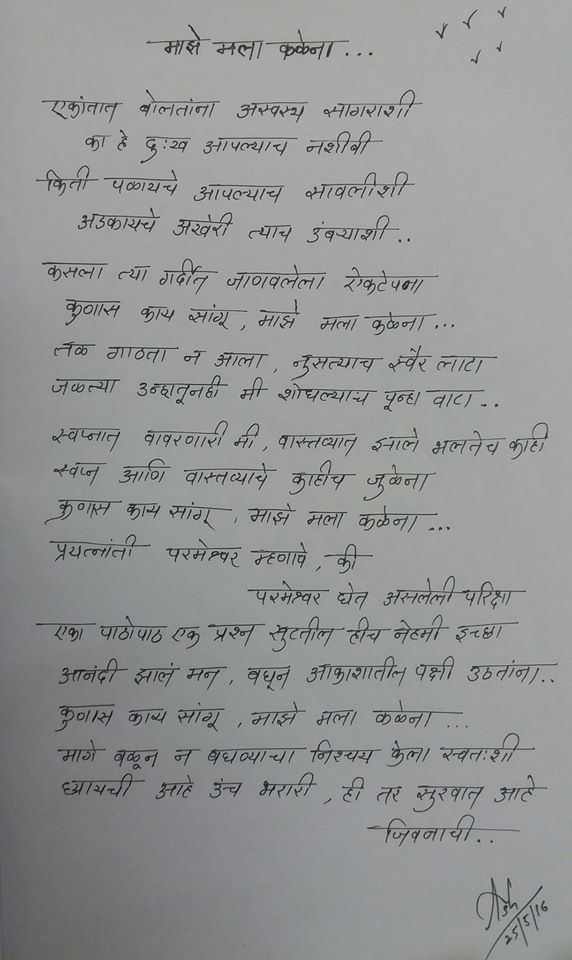 माझे मला कळेना...
एकांतात बोलतांना अस्वस्थ सागराशी
का हे दुःख आपल्याच नशीबी
किती पळायचे आपल्याच सावलीशी
अडकायचे अखेरी त्याच उंबऱ्याशी..
कसला त्या गर्दीत जाणवलेला ऐकटेपणा
कुणास काय सांगू, माझे मला कळेना...
तळ गाठता न आला, नुसत्याच स्वैर लाटा
जळत्या उन्हातूनही मी शोधल्याच पून्हा वाटा..
स्वप्नात वावरणारी मी, वास्तव्यात झाले भलतेच काही
स्वप्न आणि वास्तव्याचे काहीच जुळेना
कुणास काय सांगू, माझे मला कळेना...
प्रयत्नांती परमेश्वर म्हणावे, की
परमेश्वर घेत असलेली परिक्षा
एका पाठोपाठ एक प्रश्न सुटतील हीच नेहमी इच्छा
आनंदी झालं मन, बघून आकाशातील पक्षी उठतांना..
कुणास काय सांगू, माझे मला कळेना...
मागे वळून न बघण्याचा निश्चय केला स्वतःशी
घ्यायची आहे उंच भरारी, ही तर सुरवात आहे
जिवनाची..
Ash
25/5/16